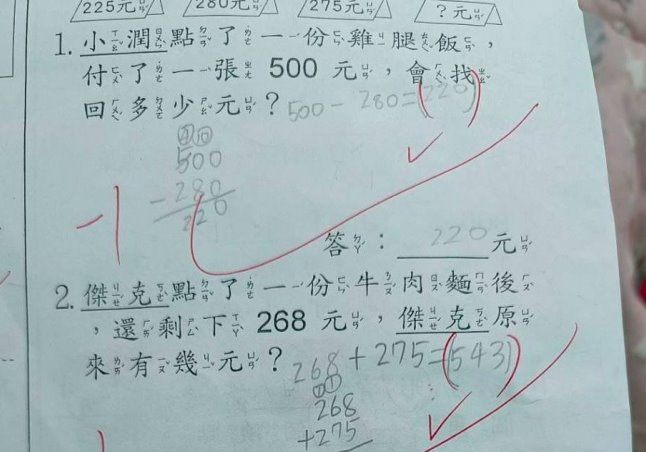 225元 280元 275元 ?元
1. 小潤點了一份雞腿飯，
付了一張 500 元，會找
回多少元？500－280=(220)
500
－280
220
－1
答：220元
2. 傑克點了一份牛肉麵後
，還剩下 268 元，傑克原
來有幾元？268＋275=(543)
268
＋275